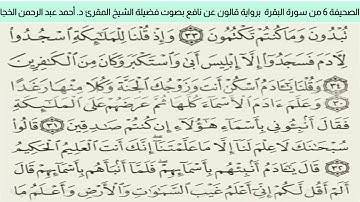 الصحيفة 6 من سورة البقرة برواية قالون عن نافع بصوت فضيلة الشيخ المقرئ د. أحمد عبد الرحمن
تُبْدُونَ وَمَا كُنتُمْ تَكْتُمُونَ ٣٣ وَإِذْ قُلْنَا لِلْمَلَٰٓئِكَةِ اِ۟سْجُدُواْ
لِأٓدَمَ فَسَجَدُوٓاْ إِلَّآ إِبْلِيسَ أَبَىٰ وَاسْتَكْبَرَ وَكَانَ مِنَ اَ۬لْكَٰفِرِينَ
٣٤ وَقُلْنَا يَٰٓـَٔادَمُ اُ۟سْكُنْ أَنتَ وَزَوْجُكَ اَ۬لْجَنَّةَ وَكُلَا مِنْهَا رَغَداً
٣٠ وَعَلَّمَ ءَادَمَ اَ۬لْأَسْمَآءَ كُلَّهَا ثُمَّ عَرَضَهُمْ عَلَى اَ۬لْمَلَٰٓئِكَةِ
فَقَالَ أَنۢبِـُٔونِي بِأَسْمَآءِ هَٰٓؤُلَآءِ إِن كُنتُمْ صَٰدِقِينَ ٣١ قَالُواْ
سُبْحَٰنَكَ لَا عِلْمَ لَنَآ إِلَّا مَا عَلَّمْتَنَآ إِنَّكَ أَنتَ اَ۬لْعَلِيمُ اُ۬لْحَكِيمُ
٣٢ قَالَ يَٰٓـَٔادَمُ أَنۢبِئْهُم بِأَسْمَآئِهِمْ فَلَمَّآ أَنۢبَأَهُم بِأَسْمَآئِهِمْ قَالَ
أَلَمْ أَقُل لَّكُمْ إِنِّيَ أَعْلَمُ غَيْبَ اَ۬لسَّمَٰوَٰتِ وَالْأَرْضِ وَأَعْلَمُ مَا